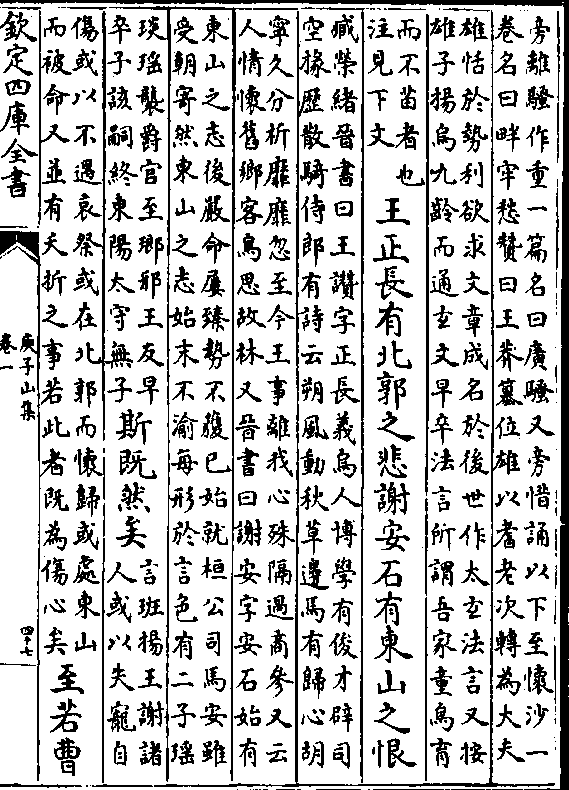 旁離騷作重一篇名曰廣騷又旁惜誦以下至懷沙一
卷名曰畔牢愁贊曰王莽簒位雄以耆老次轉為大夫
雄恬於勢利欲求文章成名於後世作太玄法言又按
雄子揚烏九齡而通玄文早卒法言所謂吾家童烏育
而不苗者也
注見下文
王正長有北郭之悲謝安石有東山之恨
臧榮緒晉書曰王讚字正長義烏人博學有俊才辟司
空掾歷散騎侍郎有詩云朔風動秋草邊馬有歸心胡
寧久分析靡靡忽至今王事離我心殊隔過商參又云
人情懷舊鄉客鳥思故林又晉書曰謝安字安石始有
東山之志後嚴命屢臻勢不獲已始就桓公司馬安雖
受朝寄然東山之志始末不渝每形於言色有二子瑶
琰瑶襲爵官至瑯邪王友早
卒子該嗣終東陽太守無子
斯既然矣
言班揚王謝諸
人或以失寵自
傷或以不遇哀祭或在北郭而懷歸或處東山
而被命又並有夭折之事若此者既為傷心矣
至若曹
欽定四庫全書
庾子山集
卷一
四十七